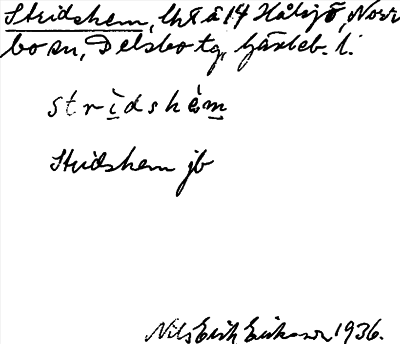 Stridshem, lht å 14 Hålsjö, Norr
bo sn, Delsbo tg, Gävleb. l.
strìdshèm
Stridshem jb
Nils Erik Eriksson 1936.